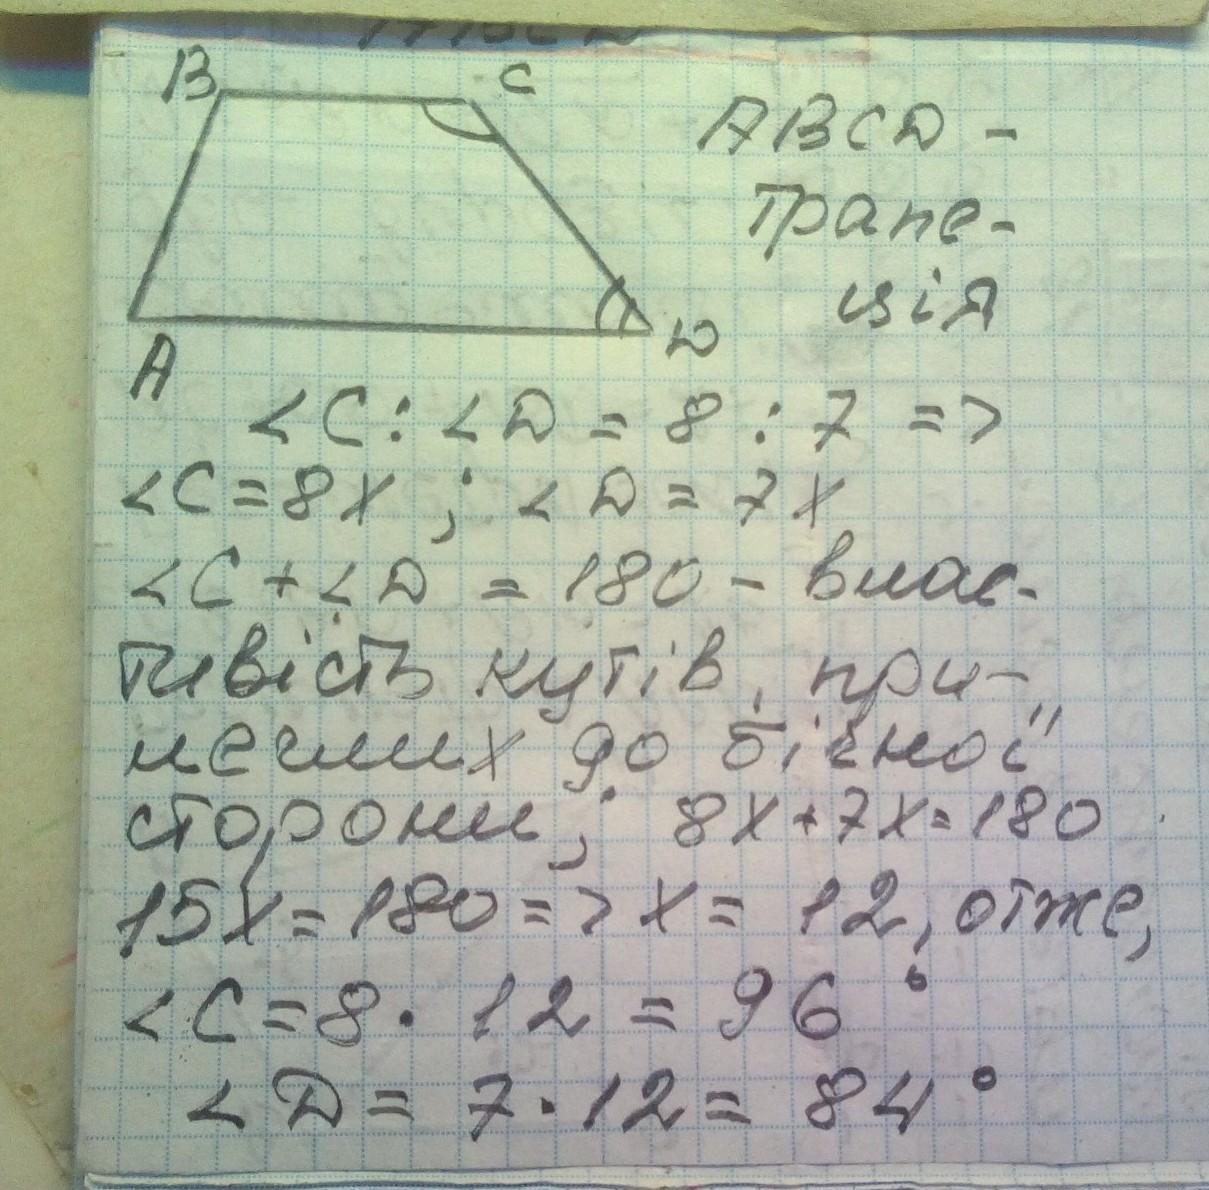 B C
ABCD -
Трапе-
ція
A D
∠C : ∠D = 8 : 7 =>
∠C = 8x ; ∠D = 7x
∠C + ∠D = 180 - влас-
тивість кутів, при-
леглих до бічної
сторони ; 8x + 7x = 180
15x = 180 => x = 12, отже,
∠C = 8 · 12 = 96°
∠D = 7 · 12 = 84°